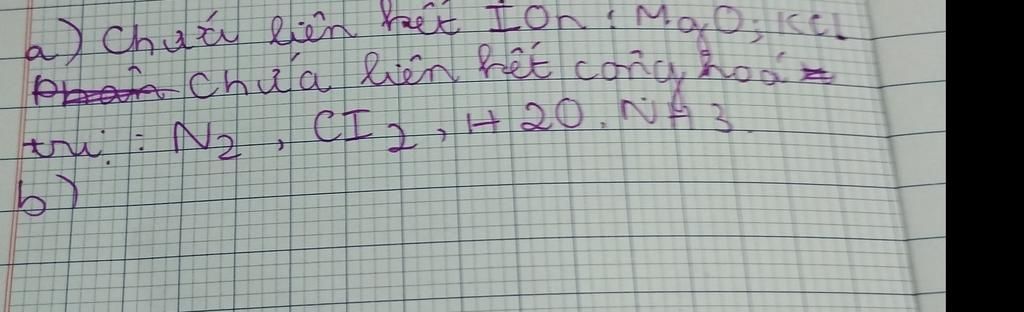 a) Chứa liên kết Ion : MgO; KCl
Chứa liên kết cộng hoá
trị : N2, CI2, H20. NH3
b)